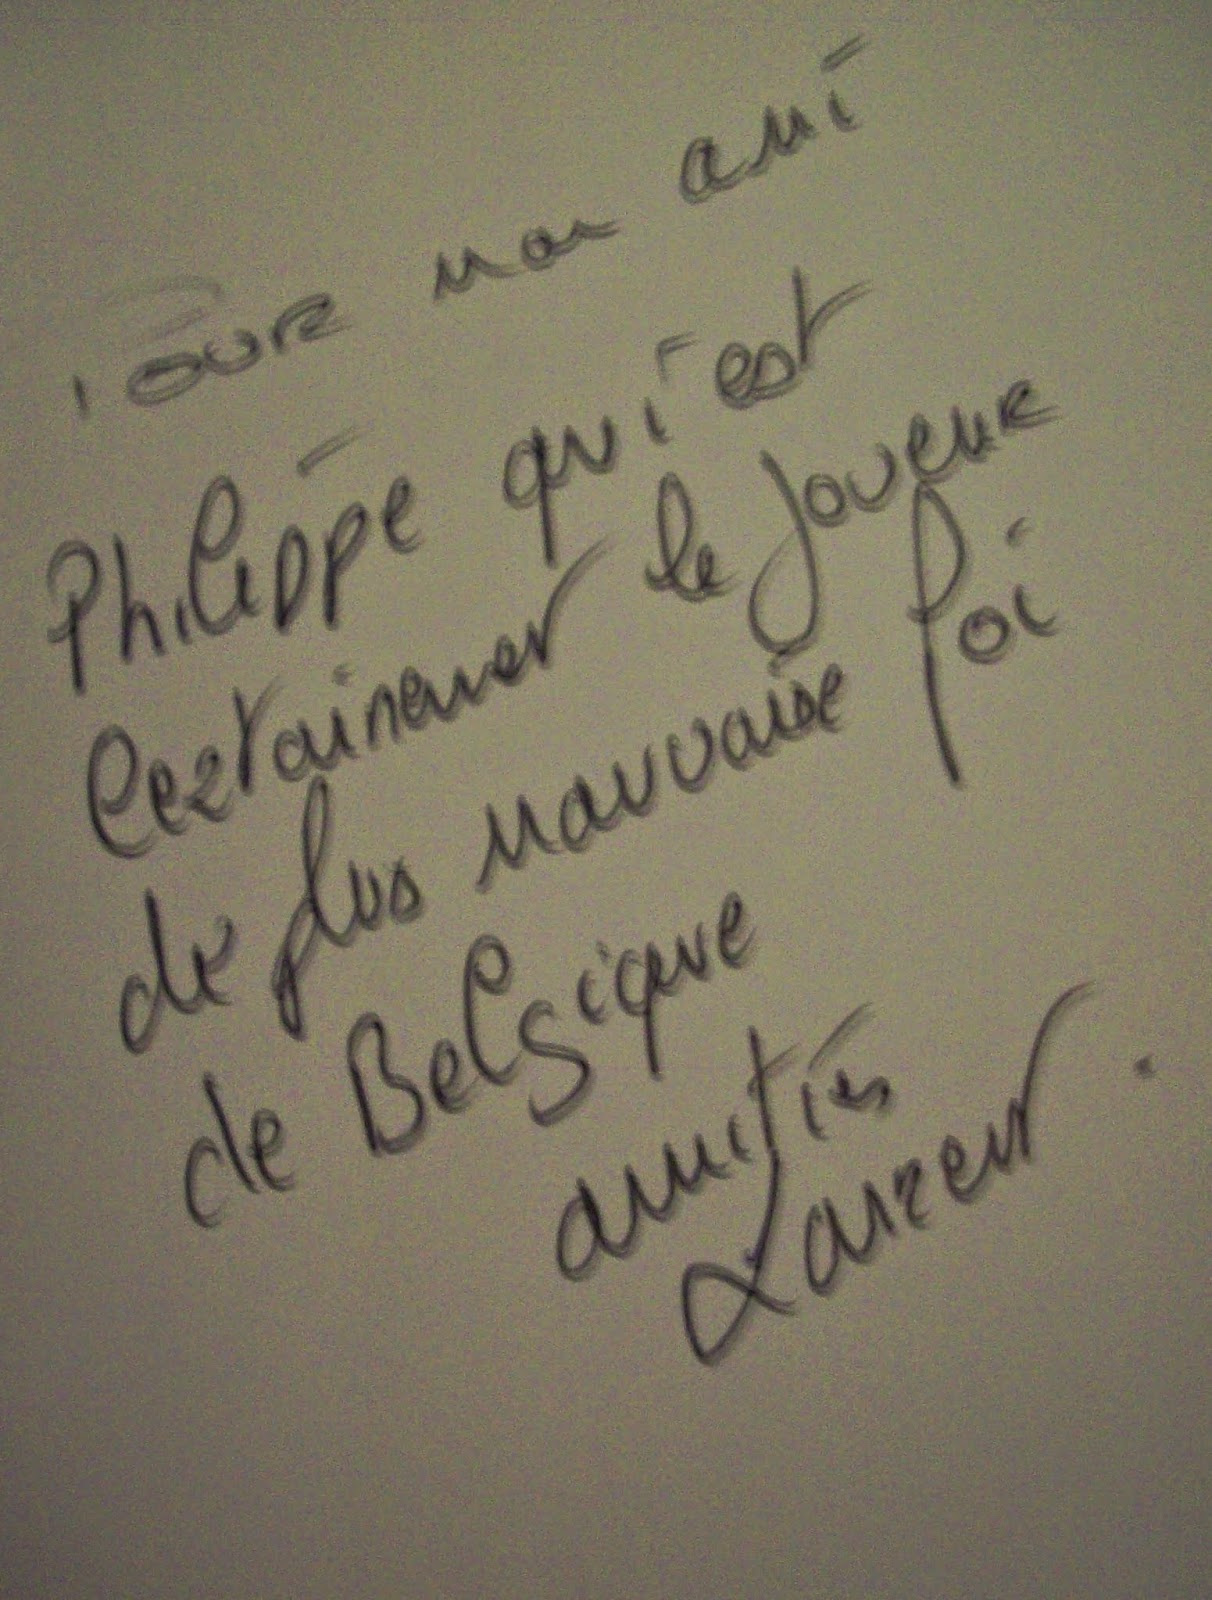 Pour mon ami
Philippe qui est
Certainement le joueur
de plus mauvaise foi
de Belgique
amitiés
Laurent.